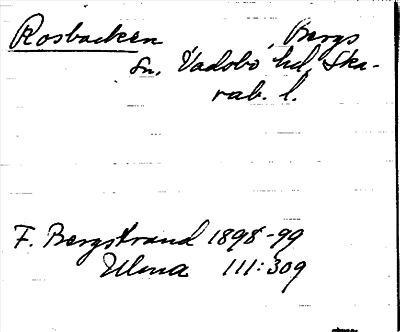 Rosbacken, Bergs
sn, Vadsbo hd, Ska-
rab. l.
F. Bergstrand 1898-99
Ulma 111:309